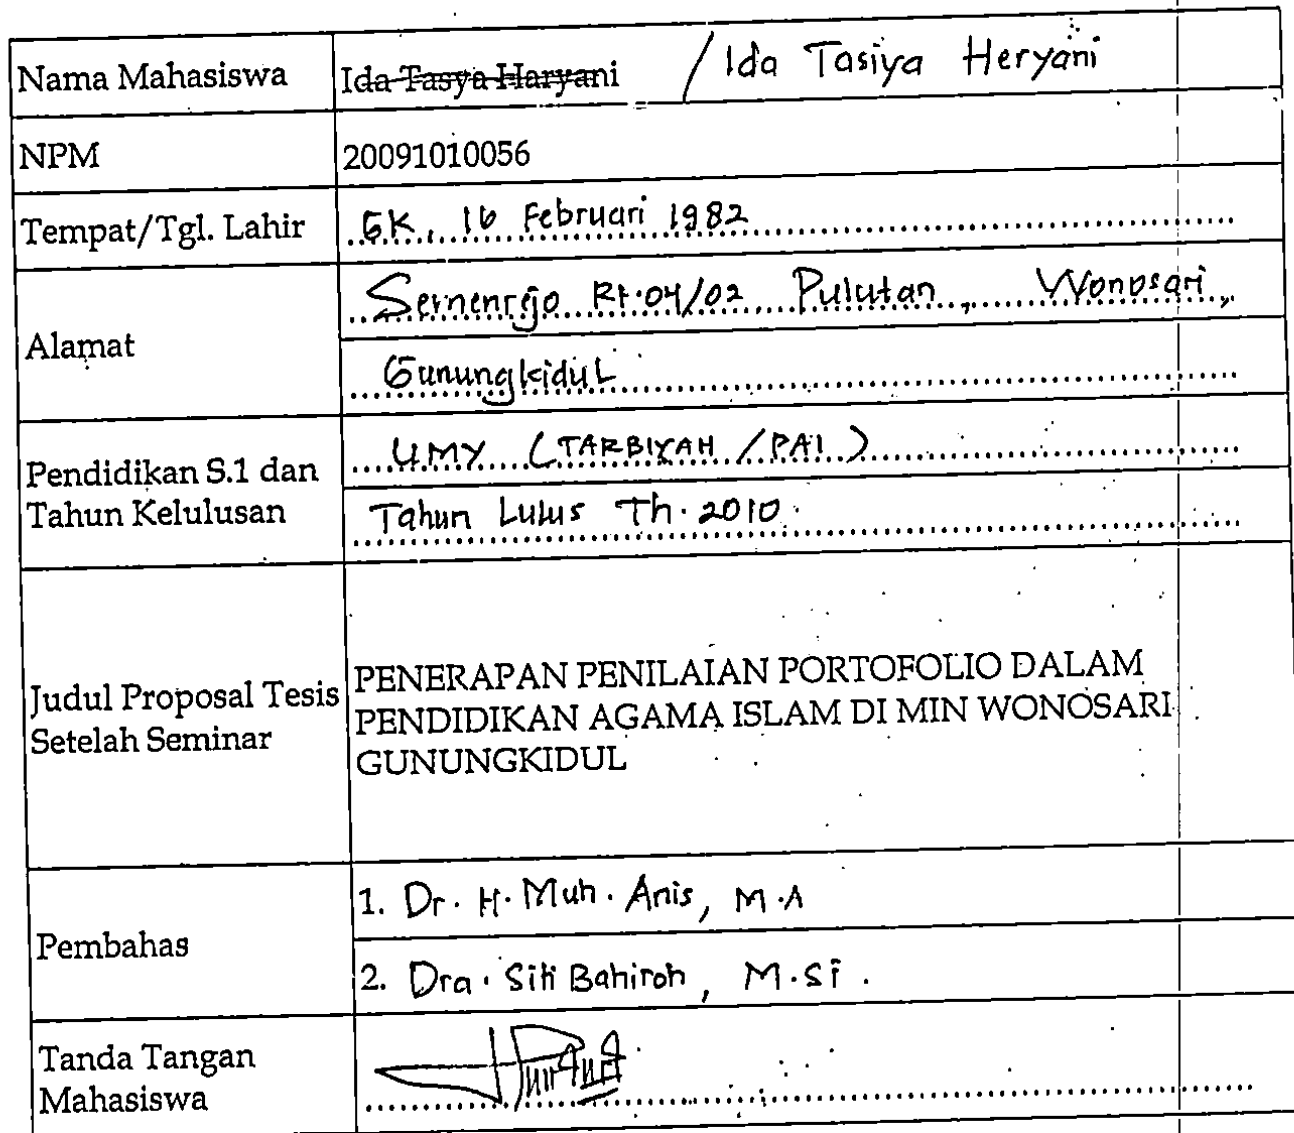 Nama Mahasiswa Ida Tasya Haryani / Ida Tasiya Heryani
NPM 20091010056
Tempat/Tgl. Lahir GK, 16 Februari 1982
Alamat
Semenrejo Rt.04/02 Pulutan, Wonosari,
Gunungkidul
Pendidikan S.1 dan
Tahun Kelulusan
UMY (TARBIYAH / PAI)
Tahun Lulus Th. 2010
Judul Proposal Tesis
Setelah Seminar
PENERAPAN PENILAIAN PORTOFOLIO DALAM
PENDIDIKAN AGAMA ISLAM DI MIN WONOSARI
GUNUNGKIDUL
Pembahas
1. Dr. H. Muh. Anis, M.A
2. Dra. Siti Bahiroh, M.Si.
Tanda Tangan
Mahasiswa